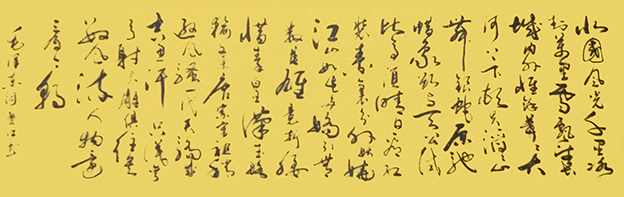 北國風光千里冰
封萬里雪飄望長
城內外惟餘莽々大
河上下頓失滔々山
舞銀蛇原馳
蠟象欲与天公試
比高須晴日看紅
裝素裹分外妖嬈
江山如此多嬌引無
數英雄競折腰
惜秦皇漢武略
輸文采唐宗宋祖稍
遜風騷一代天驕成
吉思汗只識彎
弓射大雕俱往矣
數風流人物還
看今朝
毛澤東詞 江書